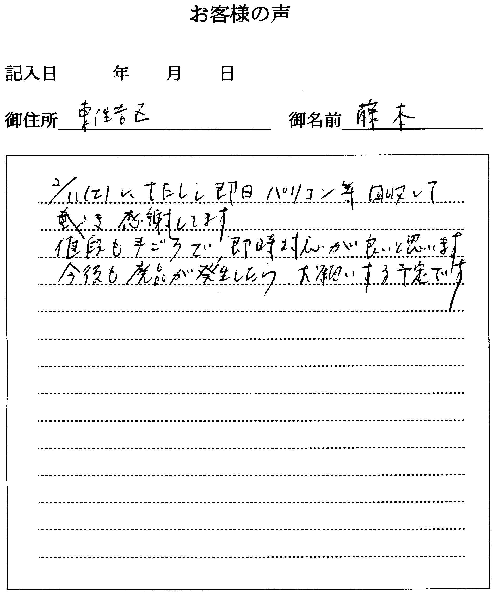 お客様の声
記入日 年 月 日
御住所 東住吉区
御名前 藤本
2/11(土)に 即日 パソコン等 回収して
戴き 感謝してます
値段も手ごろで、即時対応が良いと思います
今後も廃品が発生したら お願いする予定です